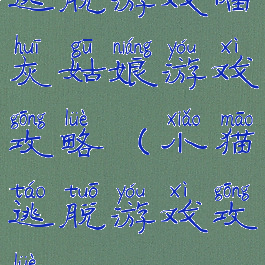 逃脱游戏喵
huī gū niáng yóu xì
灰姑娘游戏
gōng lüè xiǎo māo
攻略(小猫
táo tuō yóu xì gōng
逃脱游戏攻
lüè